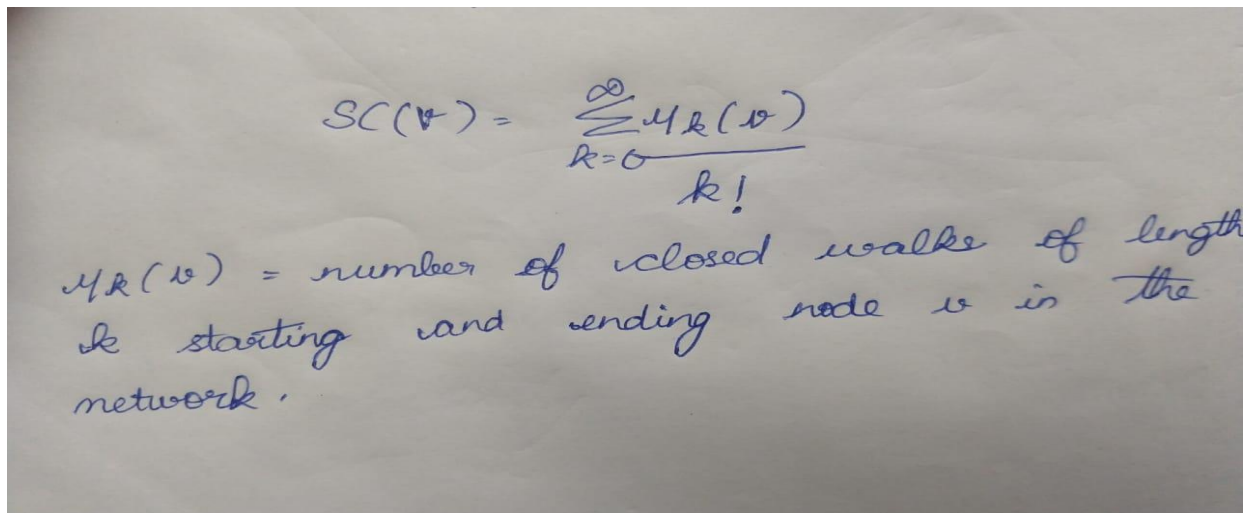 SC(v) = ∞ Σ k=0 μk(v) / k!
μk(v) = number of closed walks of length
k starting and ending node v in the
network.